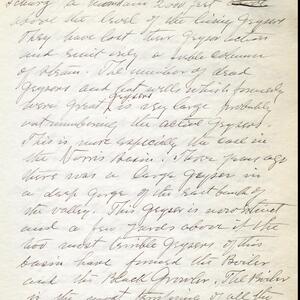 a mountain 200 feet
above the level of the living Geysers
They have lost their Geyser action
and emit only a column
of steam. The number of dead
Geysers and hot wells which formerly
were great Geysers is very large probably
outnumbering the active Geysers
This is more especially the case in
the Norris Basin. Three years ago
there was a large Geyser in
a deep gorge of the east bank of
the valley. This Geyser is now extinct
and a few yards above it the
two most terrible Geysers of this
basin have formed the Boiler
and the Black Growler. The Boiler
is the most of all the